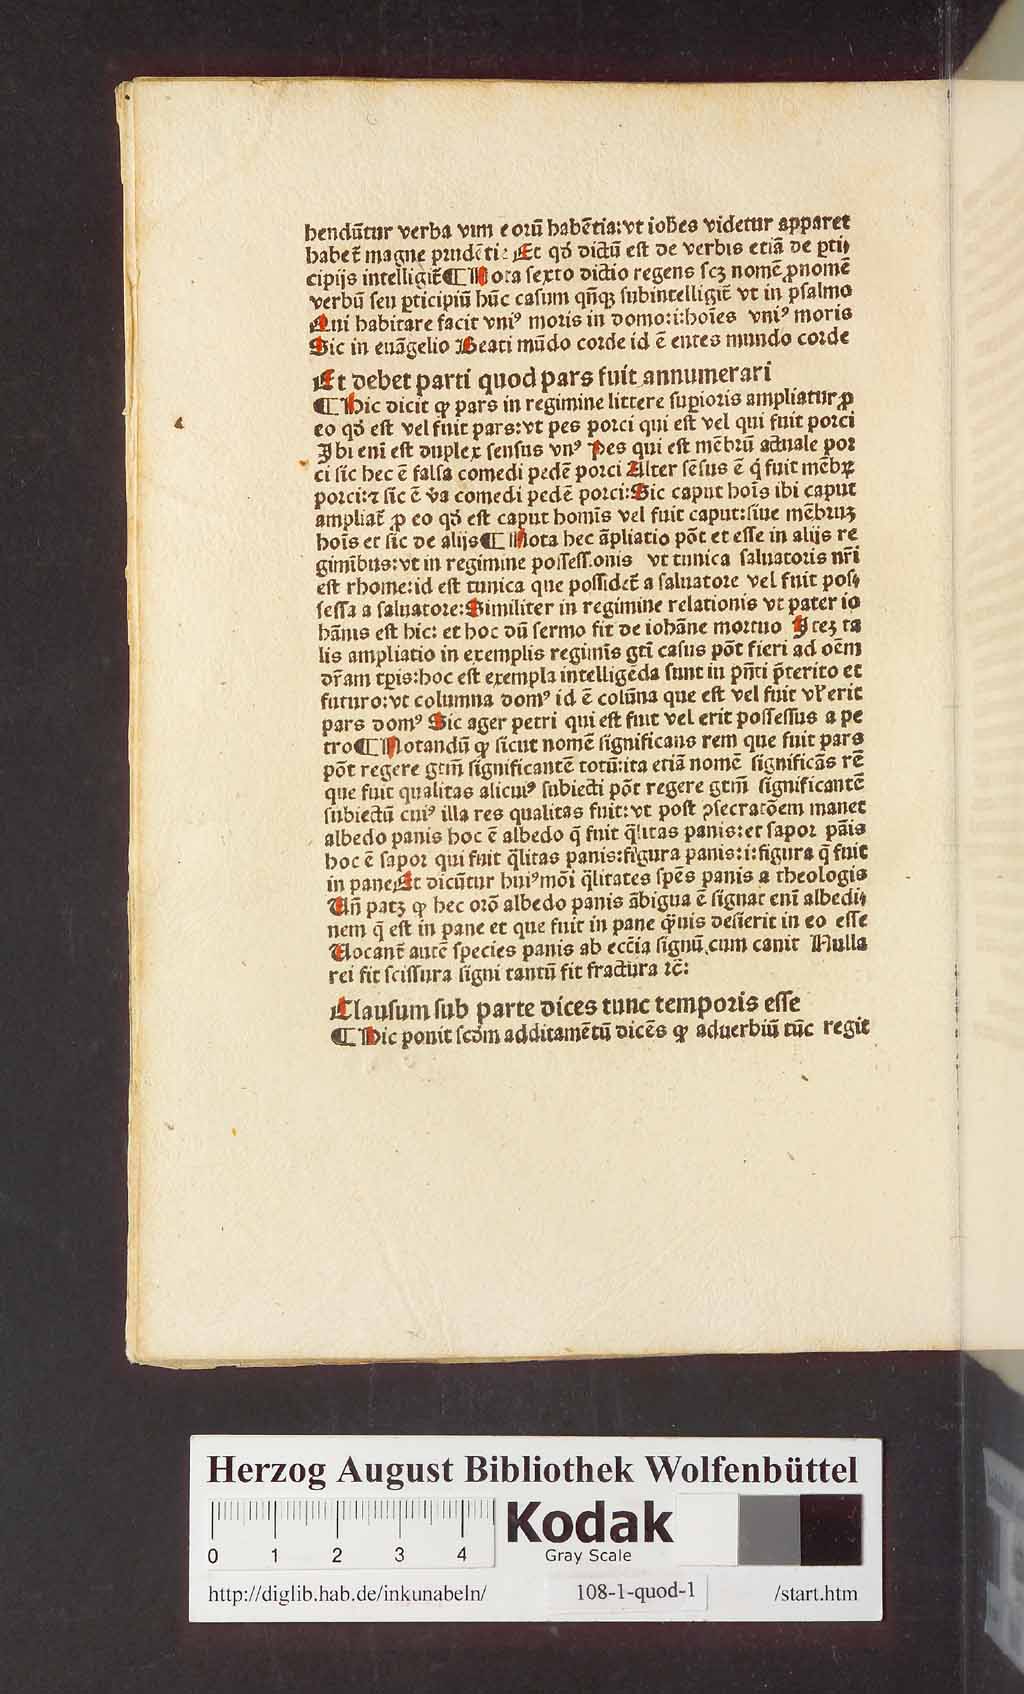 hendūtur verba vim eorū habētia: vt iohēs videtur apparet
habet̄ magne prudēti: Et qđ dictū est de verbis etiā de ꝑti⸗
cipijs intelligit̄ ¶ Nota sexto dictio regens scꝫ nomē ꝓnomē
verbū seu ꝑticipiū hūc casum qn̄qꝫ subintelligit̄ vt in psalmo
Qui habitare facit vniꝰ moris in domo: i: hoīes vniꝰ moris
Sic in euāgelio Beati mūdo corde id ē entes mundo corde
Et debet parti quod pars fuit annumerari
¶ Hic dicit ꝙ pars in regimine littere suꝑioris ampliatur ꝓ
eo qđ est vel fuit pars: vt pes porci qui est vel qui fuit porci
Ibi enī est duplex sensus vnꝰ Pes qui est mēbrū actuale por
ci sic hec ē falsa comedi pedē porci Alter sēsus ē q̄ fuit mēbꝝ
porci: ⁊ sic ē v̄a comedi pedē porci: Sic caput hoīs ibi caput
ampliat̄ ꝓ eo qđ est caput homīs vel fuit caput: siue mēbruꝫ
hoīs et sic de alijs ¶ Nota hec āpliatio pōt et esse in alijs re
gimībus: vt in regimine possess.onis vt tunica saluatoris nr̄i
est rhome: id est tunica que possidet̄ a saluatore vel fuit pos⸗
sessa a saluatore: Similiter in regimine relationis vt pater io
hānis est hic: et hoc dū sermo fit de iohāne mortuo Iteꝫ ta
lis ampliatio in exemplis regimīs gt̄i casus pōt fieri ad oēm
dr̄am tꝑis: hoc est exempla intelligēda sunt in pn̄ti p̄terito et
futuro: vt columna domꝰ id ē colūna que est vel fuit vl̓ erit
pars domꝰ Sic ager petri qui est fuit vel erit possessus a pe
tro ¶ Notandū ꝙ sicut nomē significans rem que fuit pars
pōt regere gtīm significantē totū: ita etiā nomē significās rē
que fuit qualitas alicuiꝰ subiecti pōt regere gtīm significantē
subiectū cuiꝰ illa res qualitas fuit: vt post ꝯsecratōem manet
albedo panis hoc ē albedo q̄ fuit q̄litas panis: et sapor pāis
hoc ē sapor qui fuit q̄litas panis: figura panis: i: figura q̄ fuit
in pane Et dicūtur huiꝰmōi q̄litates spēs panis a theologis
Un̄ patꝫ ꝙ hec orō albedo panis ābigua ē signat enī albedi⸗
nem q̄ est in pane et que fuit in pane q̄uis desierit in eo esse
Uocant̄ autē species panis ab ecc̄ia signū cum canit Nulla
rei fit scissura signi tantū fit fractura ⁊c̄:
Clausum sub parte dices tunc temporis esse
¶ Hic ponit scđm additamētū dicēs ꝙ aduerbiū tūc regit
Herzog August Bibliothek Wolfenbüttel
0 1 2 3 4
Kodak
Gray Scale
http://diglib.hab.de/inkunabeln/ 108-1-quod-1 /start.htm